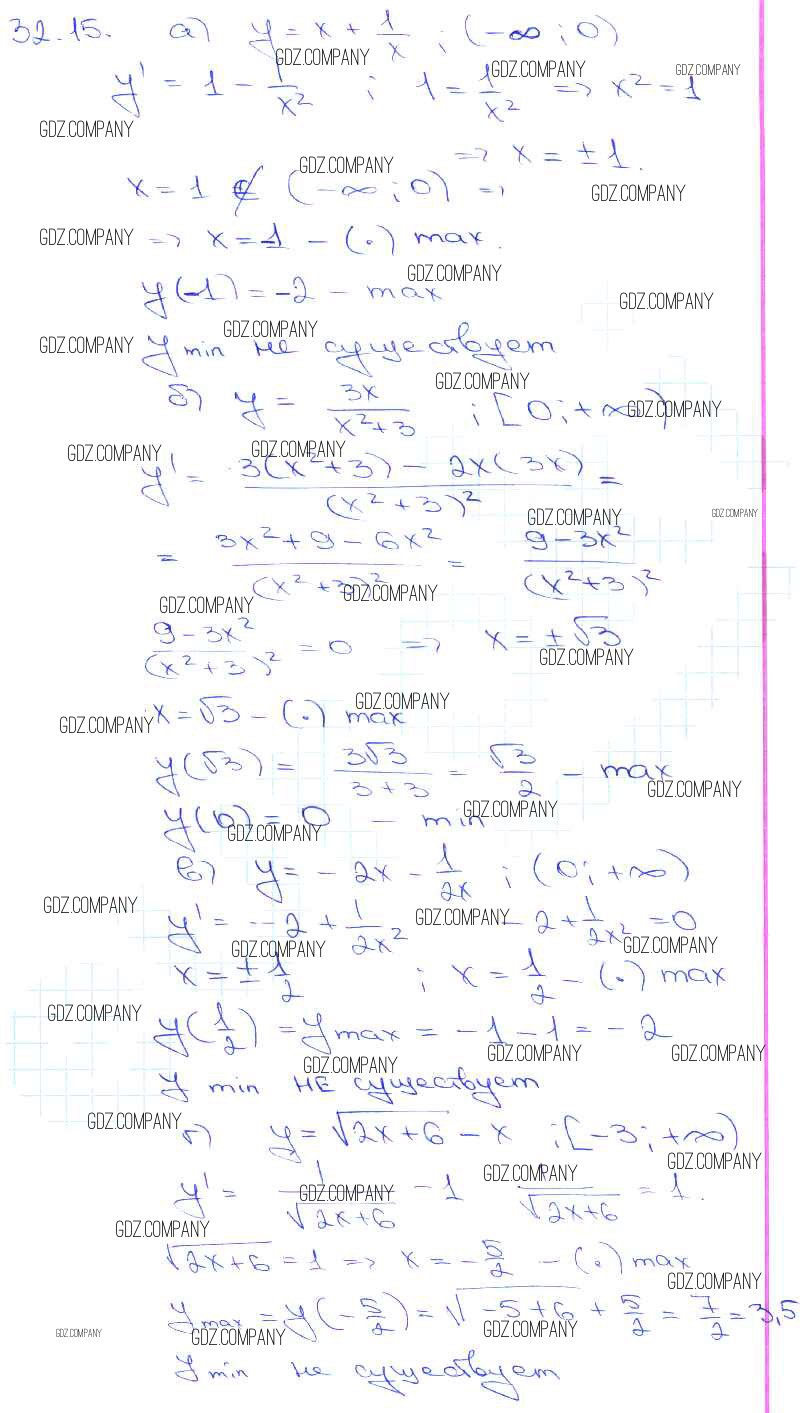 32.15. а) y = x + 1/x ; (-∞ ; 0)
GDZ.COMPANY
y' = 1 - 1/x² ; 1 = 1/x² => x² = 1
GDZ.COMPANY GDZ.COMPANY
GDZ.COMPANY
=> x = ±1.
GDZ.COMPANY
x = 1 ∉ (-∞ ; 0) =>
GDZ.COMPANY
GDZ.COMPANY => x = -1 - (·) max.
GDZ.COMPANY
y(-1) = -2 - max
GDZ.COMPANY
GDZ.COMPANY
GDZ.COMPANY y min не существует
GDZ.COMPANY
б) y = 3x/(x²+3) ; [0 ; +∞)
GDZ.COMPANY
GDZ.COMPANY GDZ.COMPANY
y' = (3(x²+3) - 2x(3x))/(x²+3)² =
GDZ.COMPANY GDZ.COMPANY
= (3x² + 9 - 6x²)/(x²+3)² = (9 - 3x²)/(x²+3)²
GDZ.COMPANY GDZ.COMPANY
(9 - 3x²)/(x²+3)² = 0 => x = ±√3
GDZ.COMPANY
GDZ.COMPANY
GDZ.COMPANY x = √3 - (·) max
y(√3) = 3√3/(3+3) = √3/2 - max
GDZ.COMPANY
GDZ.COMPANY
y(0) = 0 - min
GDZ.COMPANY
в) y = -2x - 1/2x ; (0 ; +∞)
GDZ.COMPANY
y' = -2 + 1/2x² GDZ.COMPANY -2 + 1/2x² = 0
GDZ.COMPANY GDZ.COMPANY
x = ±1/2 ; x = 1/2 - (·) max
GDZ.COMPANY
y(1/2) = y max = -1 - 1 = -2
GDZ.COMPANY GDZ.COMPANY GDZ.COMPANY
y min не существует
GDZ.COMPANY
г) y = √(2x+6) - x ; [-3 ; +∞)
GDZ.COMPANY
GDZ.COMPANY
y' = 1/√(2x+6) - 1 1/√(2x+6) = 1.
GDZ.COMPANY
GDZ.COMPANY
√(2x+6) = 1 => x = -5/2 - (·) max
GDZ.COMPANY
y max = y(-5/2) = √(-5+6) + 5/2 = 7/2 = 3,5
GDZ.COMPANY GDZ.COMPANY GDZ.COMPANY
y min не существует